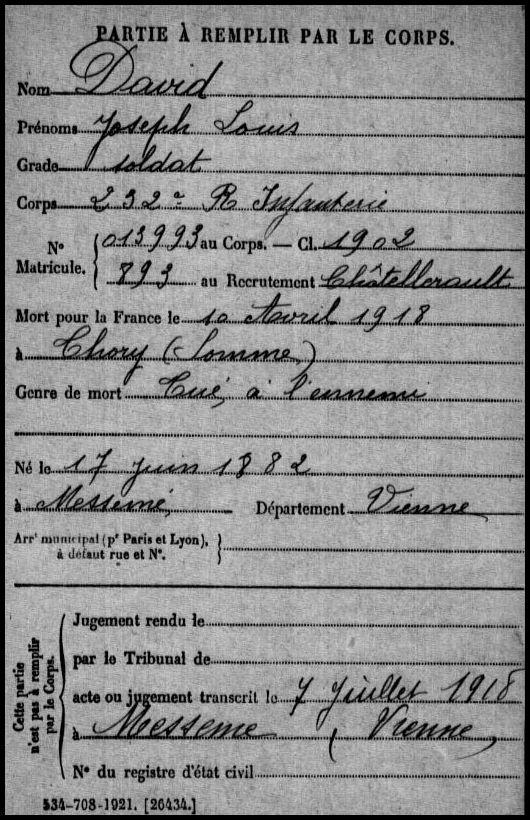 PARTIE À REMPLIR PAR LE CORPS.
Nom David
Prénoms Joseph Louis
Grade soldat
Corps 232e R Infanterie
N° Matricule. { 013993 au Corps. — Cl. 1902
893 au Recrutement Châtellerault
Mort pour la France le 10 Avril 1918
à Thory (Somme)
Genre de mort Tué à l'ennemi
Né le 17 juin 1882
à Messemé Département Vienne
Arrt municipal (pr Paris et Lyon), }
à défaut rue et N°.
Cette partie n'est pas à remplir par le Corps.
Jugement rendu le
par le Tribunal de
acte ou jugement transcrit le 7 Juillet 1918
à Messeme (Vienne)
N° du registre d'état civil
534-708-1921. [26434.]